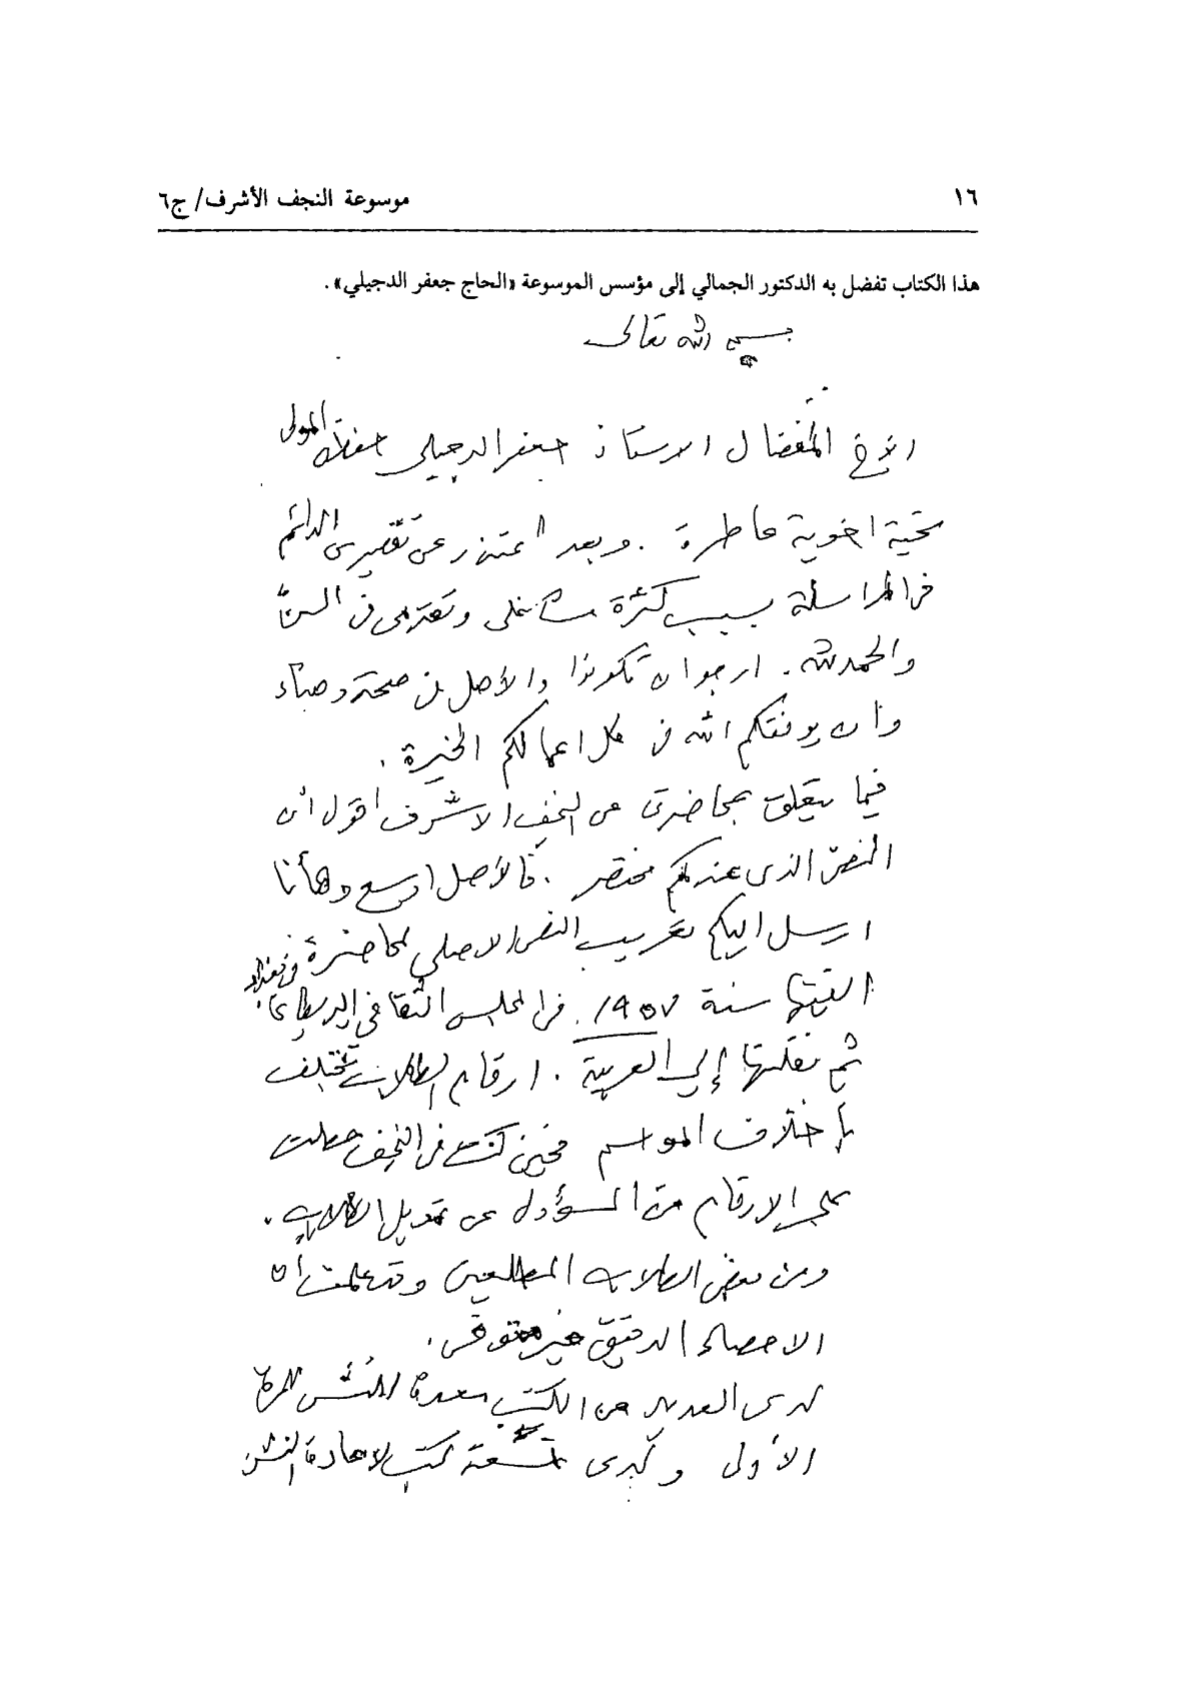 ١٦
موسوعة النجف الأشرف/ ج٦
هذا الكتاب تفضل به الدكتور الجمالي إلى مؤسس الموسوعة «الحاج جعفر الدجيلي».
بسم الله تعالى
الأخ المفضال الاستاذ جعفر الدجيلي حفظه المولى
تحية اخوية عاطرة . وبعد اعتذر عن تقصيرى الدائم
فى المراسلة بسبب كثرة مشاغلى وتقدمى فى السنّ
والحمد لله . ارجو ان تكونوا والأهل فى صحة وهناء
وأن يوفقكم الله فى كل اعمالكم الخيرة .
فيما يتعلق بمحاضرتى عن النجف الاشرف اقول أن
النصّ الذى عندكم مختصر . فالأصل اوسع وهأنا
ارسل اليكم تعريب النص الاصلي لمحاضرة
القيتها سنة ١٩٥٧ فى المجلس الثقافي البريطاني فى بغداد .
ثم نقلتها إلى العربية . ارقام الطلاب تختلف
بإختلاف المواسم فحين كنت فى النجف حصلت
على الارقام من المسؤول عن تمويل الطلاب .
ومن بعض الطلاب المطلعين وقد علمت أن
الاحصاء الدقيق غير متوفر .
لدى العديد من الكتب معدة للنشر للمرة
الأولى ولدى تسعة كتب لاعادة النشر